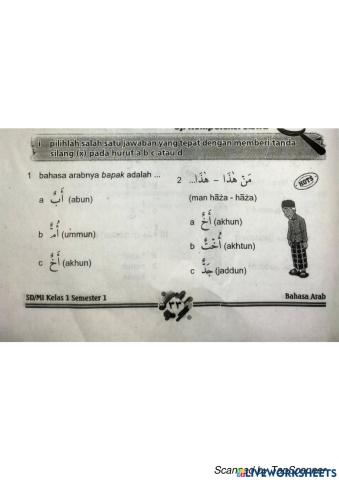 i pilihlah salah satu jawaban yang tepat dengan memberi tanda
silang (x) pada huruf a b c atau d
1 bahasa arabnya bapak adalah ...
a أَبٌ (abun)
b أُمٌّ (ummun)
c أَخٌ (akhun)
2 مَنْ هٰذَا - هٰذَا...
(man hāża - hāża)
a أَخٌ (akhun)
b أُخْتٌ (akhtun)
c جَدٌّ (jaddun)
HOTS
SD/MI Kelas 1 Semester 1
٣٣
Bahasa Arab
Scanned by TapScanner
LIVEWORKSHEETS